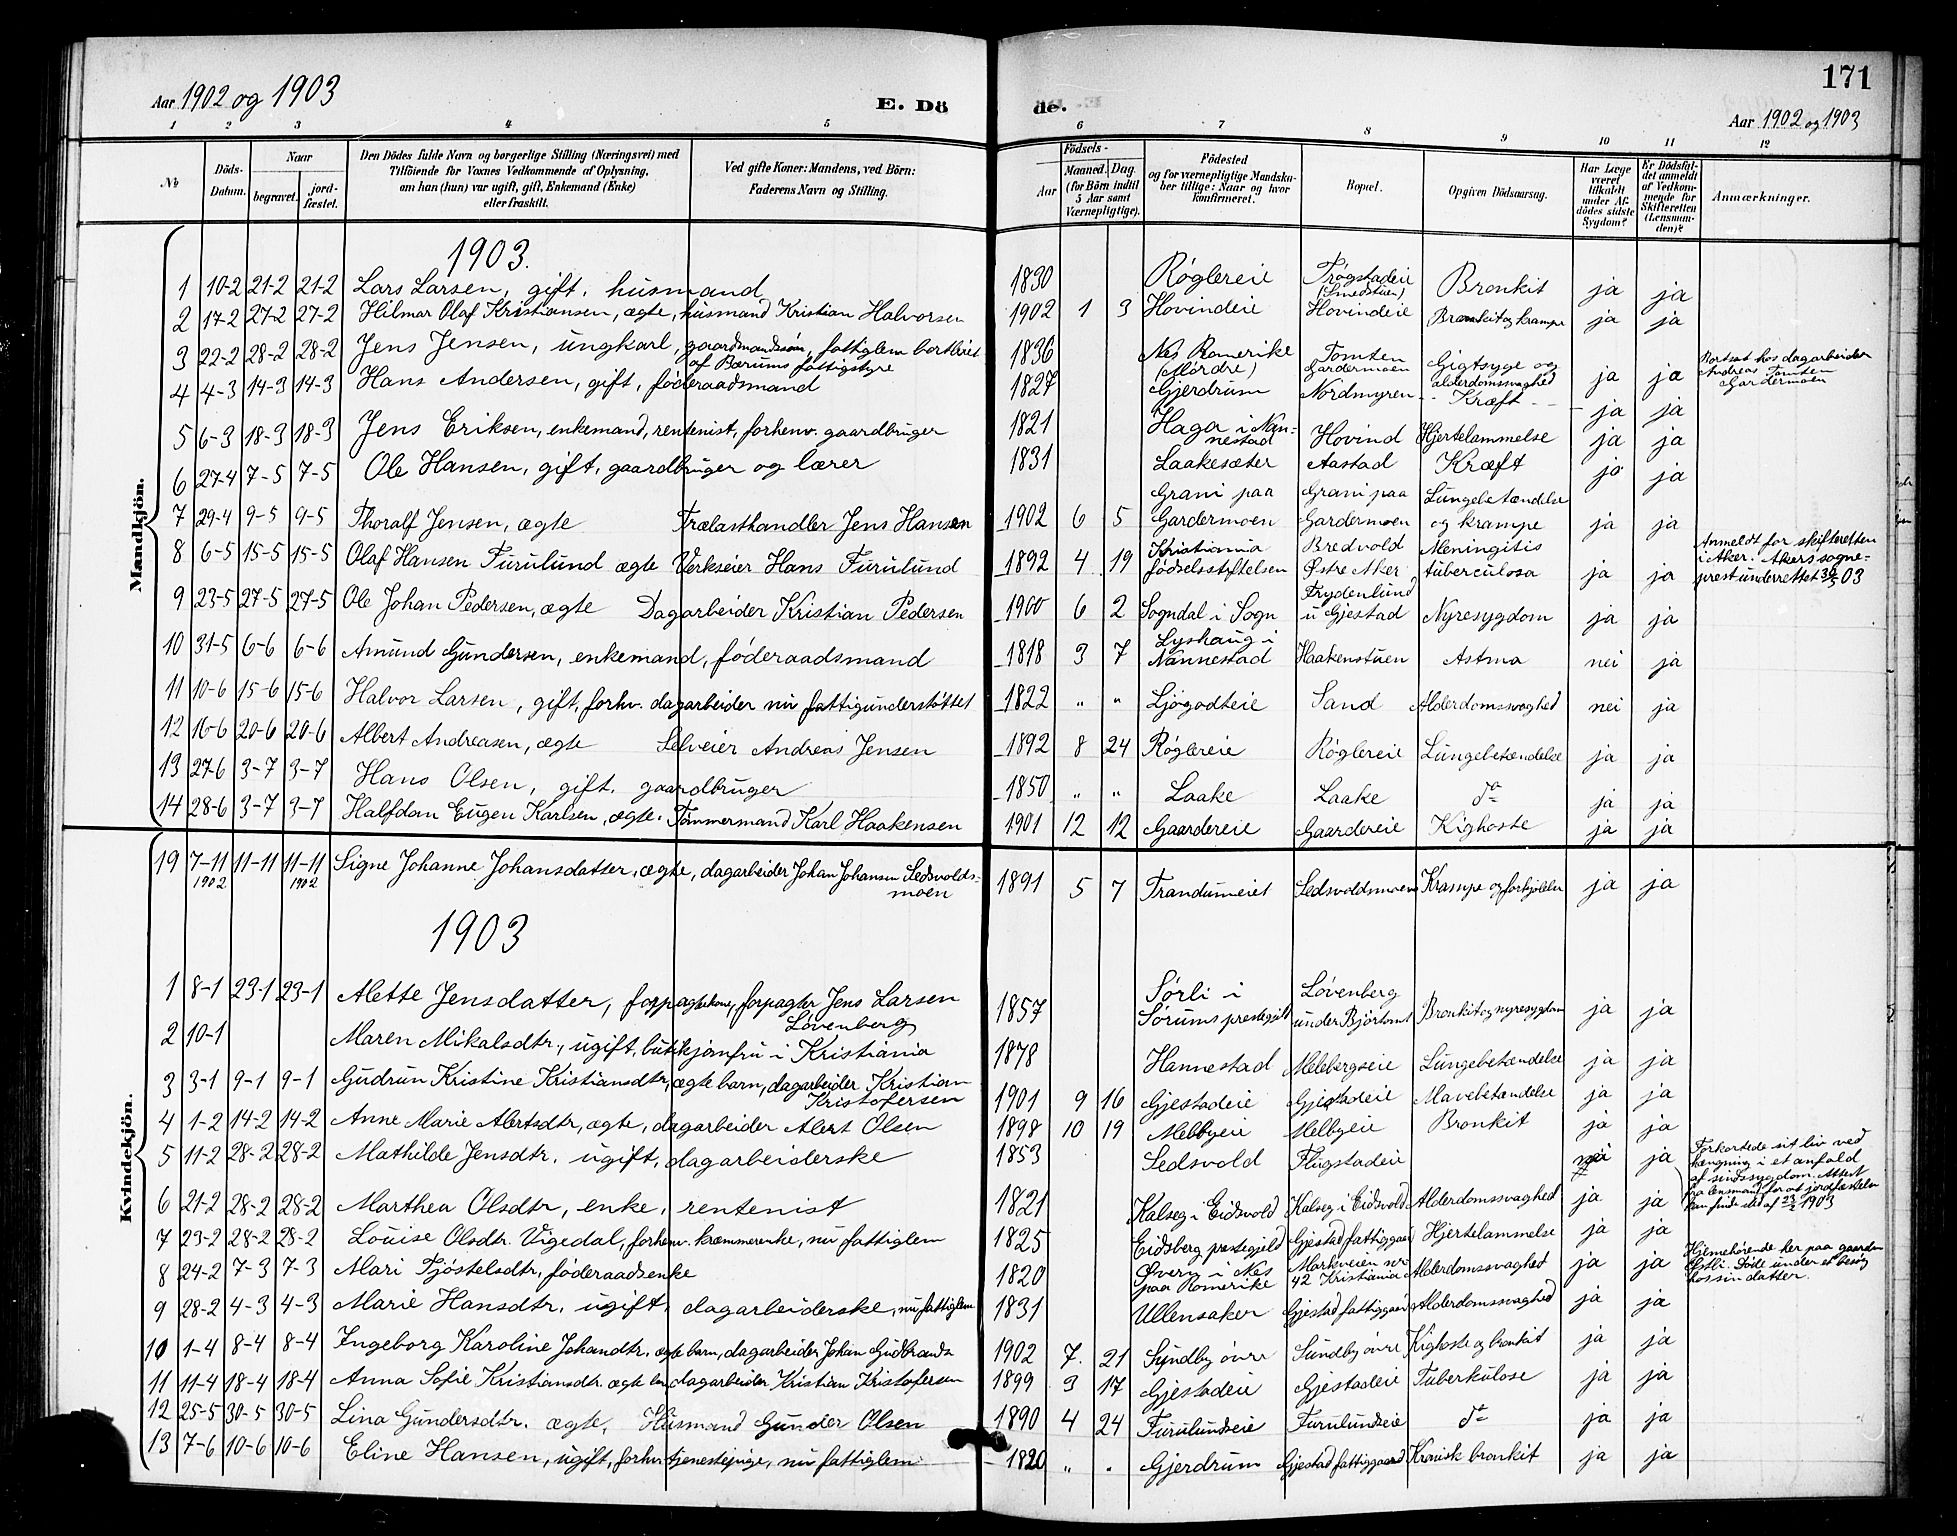 171
Aar 1902 og 1903
E. Dö
de.
Aar 1902 og 1903
1 2 3 4 5 6 7 8 9 10 11 12
№
Döds-Datum.
Naar
begravet.
jord-fæstet.
Den Dödes fulde Navn og borgerlige Stilling (Næringsvei) med
Tilföiende for Voxnes Vedkommende af Oplysning,
om han (hun) var ugift, gift, Enkemand (Enke)
eller fraskilt.
Ved gifte Koner: Mandens, ved Börn:
Faderens Navn og Stilling.
Födsels-
Aar
Maaned. Dag.
(for Börn indtil
5 Aar samt
Værnepligtige).
Födested
og for værnepligtige Mandska-
ber tillige: Naar og hvor
konfirmeret.
Bopæl.
Opgiven Dödsaarsag.
Har Læge
været
tilkaldt
under Af-
dödes sidste
Sygdom?
Er Dödsfal-
det anmeldt
af Vedkom-
mende for
Skifteretten
(Lensman-
den)?
Anmærkninger.
Mandkjön.
1903.
1 10-2 21-2 21-2 Lars Larsen, gift, husmand 1830 Røglereie Trøgstadeie (Smedstuen) Bronkit ja ja
2 17-2 27-2 27-2 Hilmar Olaf Kristiansen, ægte, husmand Kristian Halvorsen 1902 1 3 Hovindeie Hovindeie Bronkit og krampe ja ja
3 22-2 28-2 28-2 Jens Jensen, ungkarl, gaardmandssøn, fattiglem bortleiet af Bærums fattigstyre 1836 Nes Romerike (Mordre) Tomten Gardermoen Gigtsyge og alderdomssvaghed ja ja Bortsat hos dagarbeider Andreas Tomten Gardermoen
4 4-3 14-3 14-3 Hans Andersen, gift, føderaadsmand 1827 Gjerdrum Nordmyren - - Kræft - - ja ja
5 6-3 18-3 18-3 Jens Eriksen, enkemand, rentenist, forhenv. gaardbruger 1821 Haga i Nannestad Hovind Hjertelammelse ja ja
6 27-4 7-5 7-5 Ole Hansen, gift, gaardbruger og lærer 1831 Laakesæter Aastad Kræft ja ja
7 29-4 9-5 9-5 Thoralf Jensen, ægte Trælasthandler Jens Hansen 1902 6 5 Grani paa Gardermoen Grani paa Gardermoen Lungebetændelse og krampe ja ja
8 6-5 15-5 15-5 Olaf Hansen Furulund ægte Verkseier Hans Furulund 1892 4 19 Kristiania fødselsstiftelsen Bredvold Østre Aker Meningitis tuberculosa ja ja Anmeldt for skifteretten i Aker. Akers sogneprest underrettet 30/5 03
9 23-5 27-5 27-5 Ole Johan Pedersen, ægte Dagarbeider Kristian Pedersen 1900 6 2 Sogndal i Sogn Frydenlund u Gjestad Nyresygdom ja ja
10 31-5 6-6 6-6 Amund Gundersen, enkemand, føderaadsmand 1818 3 7 Lyshaug i Nannestad Haakenstuen Astma nei ja
11 10-6 15-6 15-6 Halvor Larsen, gift, forhv. dagarbeider nu fattigunderstøttet 1822 " " Ljøgodteie Sand Alderdomssvaghed nei ja
12 16-6 20-6 20-6 Albert Andreasen, ægte Selveier Andreas Jensen 1892 8 24 Røglereie Røglereie Lungebetændelse ja ja
13 27-6 3-7 3-7 Hans Olsen, gift, gaardbruger 1850 " " Laake Laake do ja ja
14 28-6 3-7 3-7 Halfdan Eugen Karlsen, ægte. Tømmermand Karl Haakensen 1901 12 12 Gaardereie Gaardereie Kighoste ja ja
Kvindekjön.
19 7-11 1902 11-11 11-11 1902 Signe Johanne Johansdatter, ægte, dagarbeider Johan Johansen Ledsvoldsmoen 1891 5 7 Trandumeiet Ledsvoldsmoen Krampe og forkjølelse ja ja
1903
1 8-1 23-1 23-1 Alette Jensdatter, forpagterkone, forpagter Jens Larsen Løvenberg 1857 Sørli i Sørums prestegjeld Løvenberg under Bjørtomt Bronkit og nyresygdom ja ja
2 10-1 Maren Mikalsdtr., ugift, butikjomfru i Kristiania 1878 Hannestad Melebergseie Lungebetændelse ja ja
3 3-1 9-1 9-1 Gudrun Kristine Kristiansdtr, ægte barn, dagarbeider Kristian Kristofersen 1901 9 16 Gjestadeie Gjestadeie Mavebetændelse ja ja
4 1-2 14-2 14-2 Anne Marie Alertsdtr, ægte, dagarbeider Alert Olsen 1898 10 19 Melbyeie Melbyeie Bronkit ja ja
5 11-2 28-2 28-2 Mathilde Jensdtr. ugift, dagarbeiderske 1853 Ledsvold Flugstadeie nei ja Forkortede sit liv ved hængning i et anfald af sindssygdom. Attest fra lensmand for at jordfæstelse kan finde sted af 23/2 1903
6 21-2 28-2 28-2 Marthea Olsdtr, enke, rentenist 1821 Kalseg i Eidsvold Kalseg i Eidsvold Alderdomssvaghed ja ja
7 23-2 28-2 28-2 Louise Olsdtr. Vigedal, forhenv. kræmmerenke, nu fattiglem 1825 Eidsberg prestegjeld Gjestad fattiggaard Hjertelammelse ja ja
8 24-2 7-3 7-3 Mari Tjøstelsdtr, føderaadsenke 1820 Øvern i Nes paa Romerike Markveien 42 Kristiania Alderdomssvaghed ja ja Hjemmehørende her paa gaarden Østli. Døde under et besøg hos sin datter.
9 28-2 4-3 4-3 Marie Hansdtr. ugift, dagarbeiderske, nu fattiglem 1831 Ullensaker Gjestad fattiggaard Alderdomssvaghed ja ja
10 1-4 8-4 8-4 Ingeborg Karoline Johandtr. ægte barn, dagarbeider Johan Gudbrands 1902 7. 21 Sundby øvre Sundby øvre Kighoste og bronkit ja ja
11 11-4 18-4 18-4 Anna Sofie Kristiansdtr. ægte barn dagarbeider Kristian Kristofersen 1899 3 17 Gjestadeie Gjestadeie Tuberkulose ja ja
12 25-5 30-5 30-5 Lina Gundersdtr. ægte, Husmand Gunder Olsen 1890 4 24 Furulundseie Furulundseie do ja ja
13 7-6 10-6 10-6 Eline Hansen, ugift, forhv tjenestepige, nu fattiglem 1820 " " Gjerdrum Gjestad fattiggaard Kronisk bronkit ja ja